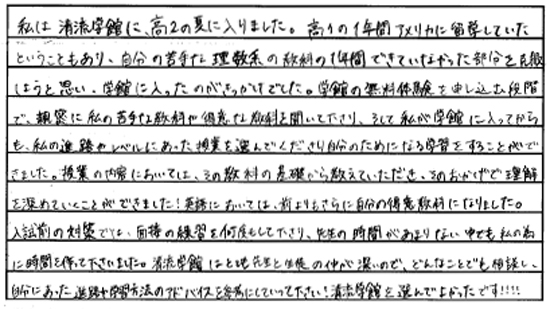 私は清流学館に、高2の夏に入りました。高1の1年間アメリカに留学していた
ということもあり、自分の苦手な理数系の教科の1年間できていなかった部分を克服
しようと思い、学館に入ったのがきっかけでした。学館の無料体験を申し込む段階
で、親密に私の苦手な教科や得意な教科を聞いて下さり、そして私が学館に入ってから
も、私の進路やレベルにあった授業を選んでくださり自分のためになる学習をすることがで
きました。授業の内容においては、その教科の基礎から教えていただき、そのおかげで理解
を深めていくことができました!英語においては、前よりもさらに自分の得意教科になりました。
入試前の対策では、面接の練習を何度もして下さり、先生の時間があまりない中でも私の為
に時間を作って下さいました。清流学館はとても先生と生徒の仲が深いので、どんなことでも相談し、
自分にあった進路や学習方法のアドバイスを参考にしていって下さい!清流学館を選んでよかったです!!!!